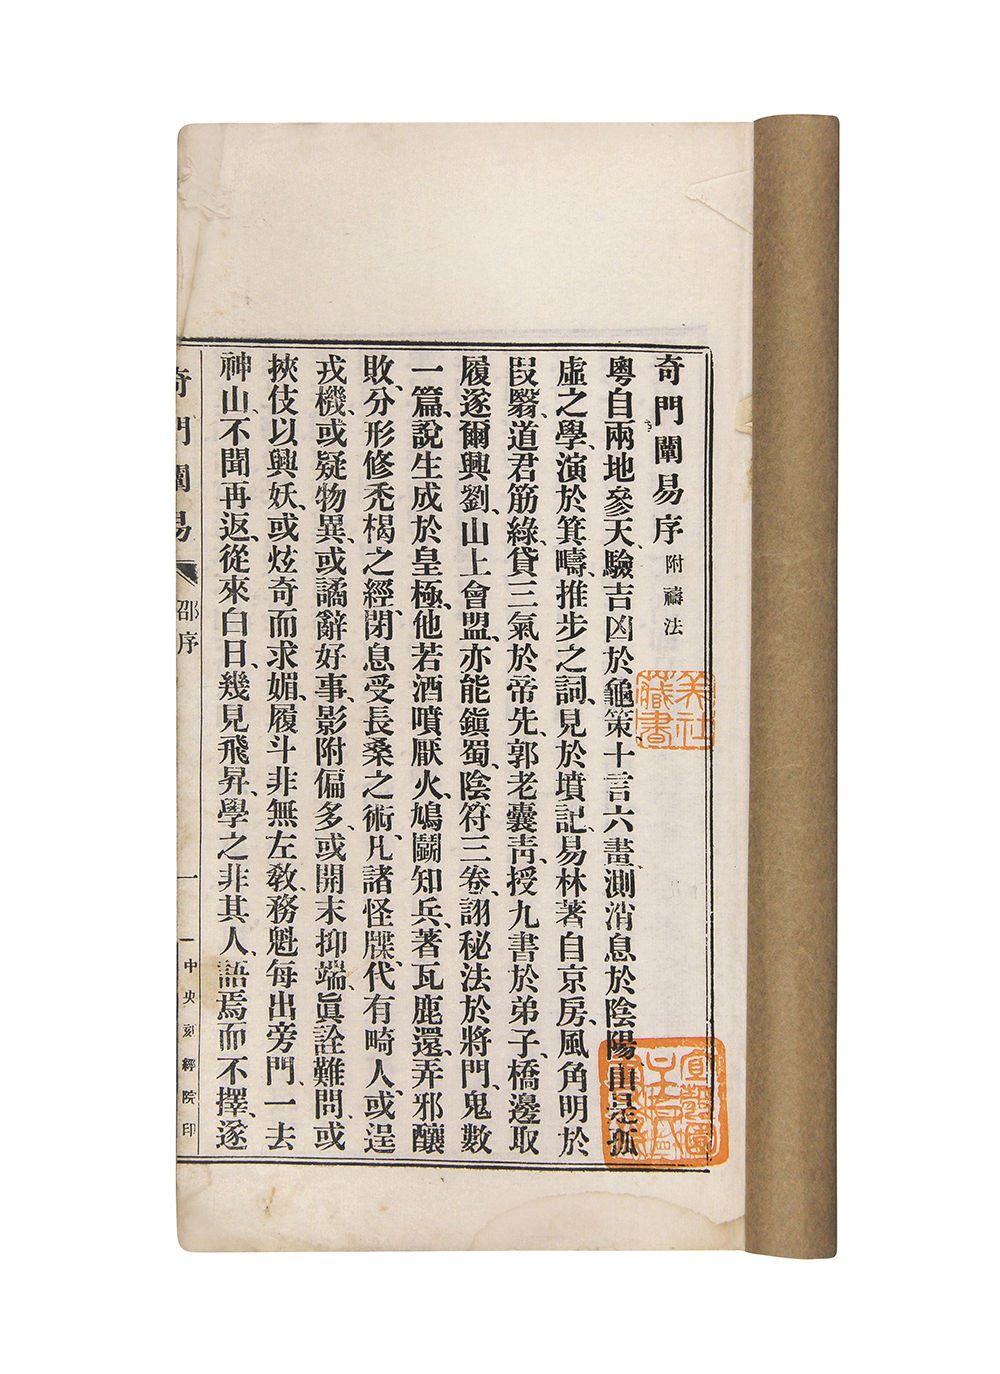 奇門闡易序附禱法
粵自兩地參天、驗吉凶於龜策、十言六畫、測消息於陰陽、由是孤
虛之學、演於箕疇、推步之詞、見於墳記、易林著自京房、風角明於
段翳、道君筋綠、貸三氣於帝先、郭老囊靑、授九書於弟子、橋邊取
履、遂爾興劉、山上會盟、亦能鎭蜀、陰符三卷、詡秘法於將門、鬼數
一篇、說生成於皇極、他若酒噴厭火、鳩鬭知兵、著瓦鹿還、弄邪釀
敗、分形修禿楬之經、閉息受長桑之術、凡諸怪牒、代有畸人、或逞
戎機、或疑物異、或譎辭好事、影附偏多、或開末抑端、眞詮難問、或
挾伎以興妖、或炫奇而求媚、履斗非無左敎、務魁每出旁門、一去
神山、不聞再返、從來白日、幾見飛昇、學之非其人、語焉而不擇、遂
奇門闡易
邵序
一
中央刻經院印
美社
藏書